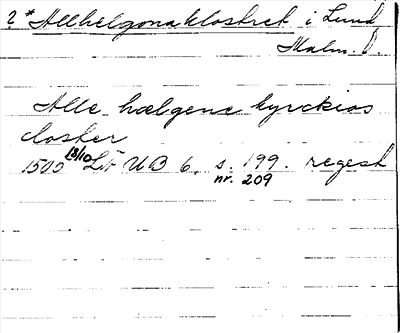 2* Allhelgonaklostret i Lund
Malm. l.
Alle hælgene kyrckios
closter
1500 13/10 Låt UB 6, s. 199. regest
nr. 209